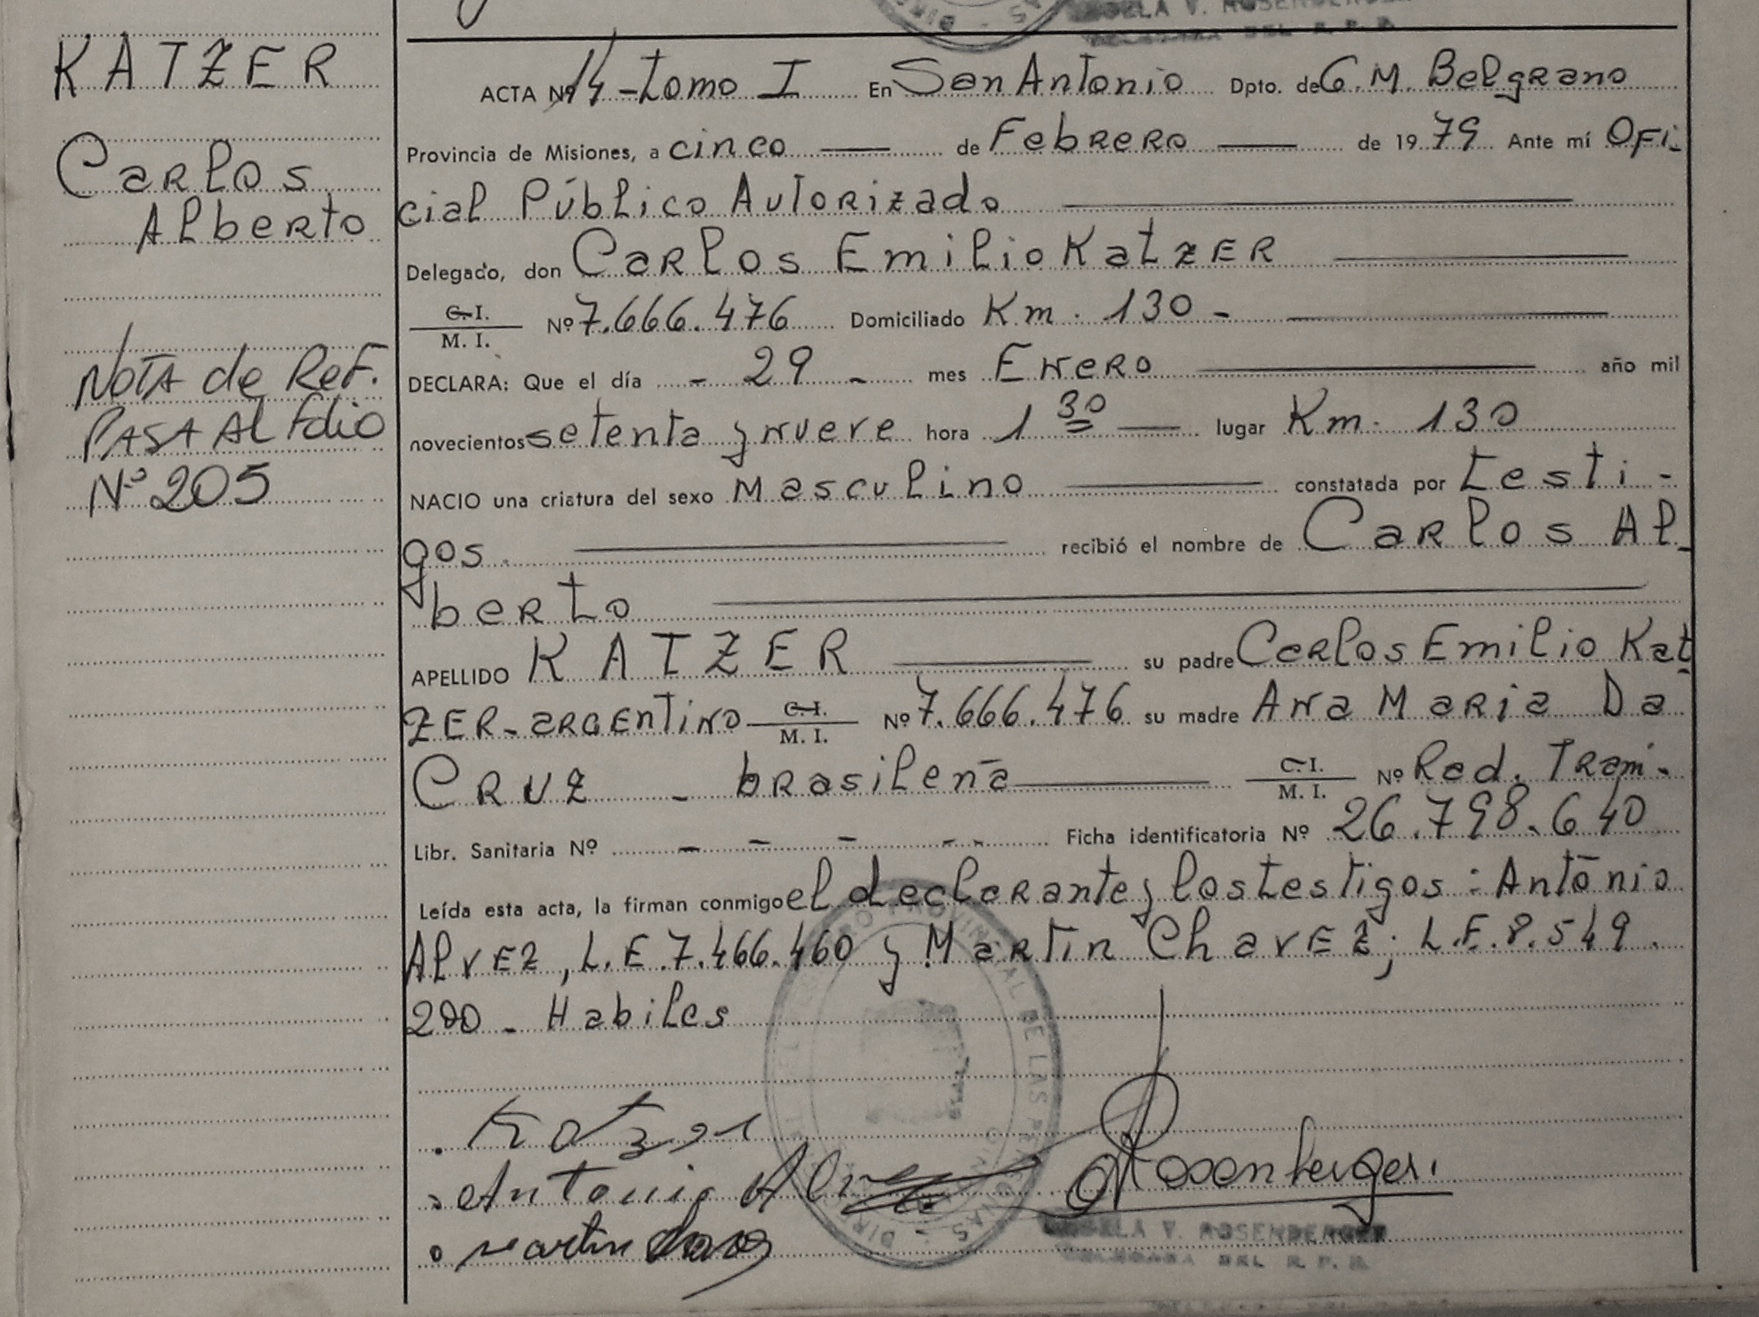 KATZER
Carlos
Alberto
Nota de Ref.
Pasa al folio
Nº 205
ACTA Nº 14 - tomo I En San Antonio Dpto. de G. M. Belgrano
Provincia de Misiones, a cinco de Febrero de 1979 Ante mí Ofi
cial Público Autorizado
Delegado, don Carlos Emilio Katzer
C. I.
M. I. Nº 7.666.476 Domiciliado Km. 130 -
DECLARA: Que el día - 29 - mes Enero año mil
novecientos setenta y nueve hora 1 30 lugar Km. 130
NACIO una criatura del sexo Masculino constatada por testi-
gos. recibió el nombre de Carlos Al_
berto
APELLIDO KATZER su padre Carlos Emilio Kat
zer - argentino C. I. M. I. Nº 7.666.476 su madre Ana Maria Da
Cruz - brasileña C. I. M. I. Nº Rad. Tram.
Libr. Sanitaria Nº - - - - - Ficha identificatoria Nº 26.798.640
Leída esta acta, la firman conmigo el declarante y los testigos: Antonio
Alvez, L.E. 7.466.460 y Martin Chavez; L.E. 8.549.
200 - Habiles
Katzer
Antonio
Rosenberger
Martin
V. ROSENBERGER
DEL R. P. P.